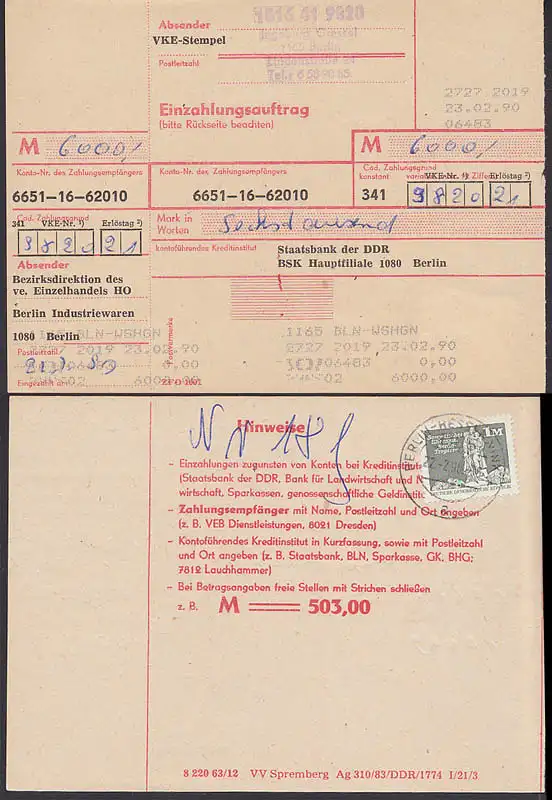 1816 41 9820
Absender
VKE-Stempel
1165 Berlin
Postleitzahl
Lindenstraße 24
2727 2019
23.02.90
06483
Einzahlungsauftrag
(bitte Rückseite beachten)
M 6000,/
M 6000,/
Konto-Nr. des Zahlungsempfängers
6651-16-62010
Konto-Nr. des Zahlungsempfängers
6651-16-62010
Cod. Zahlungsgrund
konstant
VKE-Nr. ¹) Erlöstag ²)
341 9820 21
Cod. Zahlungsgrund
341 VKE-Nr. ¹) Erlöstag ²)
9820 21
Mark in
Worten
Sechstausend
kontoführendes Kreditinstitut
Staatsbank der DDR
BSK Hauptfiliale 1080 Berlin
Absender
Bezirksdirektion des
ve. Einzelhandels HO
Berlin Industriewaren
1080 Berlin
Postleitzahl
Eingezahlt am:
Postvermerke
1165 BLN-WSHGN
2727 2019 23.02.90
06483 0,00
02 6000,00
ZFO 1001
1165 BLN-WSHGN
2727 2019 23.02.90
06483 0,00
02 6000,00
Hinweise
– Einzahlungen zugunsten von Konten bei Kreditinstitu
(Staatsbank der DDR, Bank für Landwirtschaft und N
wirtschaft, Sparkassen, genossenschaftliche Geldinstit
– Zahlungsempfänger mit Name, Postleitzahl und Ort angeben
(z. B. VEB Dienstleistungen, 8021 Dresden)
– Kontoführendes Kreditinstitut in Kurzfassung, sowie mit Postleitzahl
und Ort angeben (z. B. Staatsbank, BLN, Sparkasse, GK, BHG;
7812 Lauchhammer)
– Bei Betragsangaben freie Stellen mit Strichen schließen
z. B. M ══ 503,00
1M
8 220 63/12 VV Spremberg Ag 310/83/DDR/1774 I/21/3